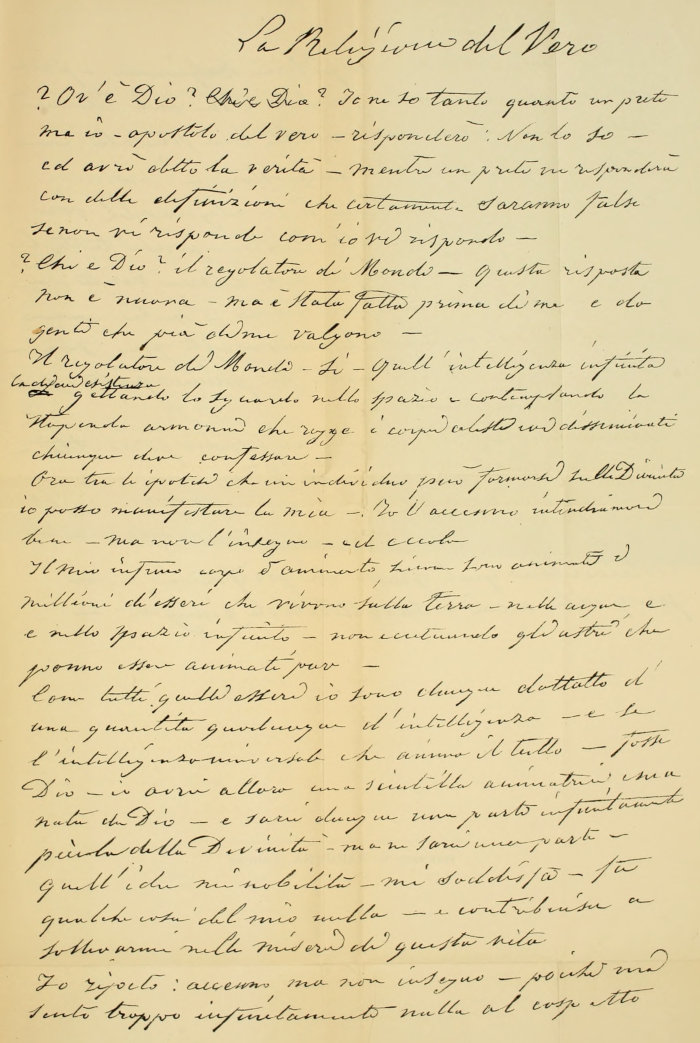 La Religione del Vero
? Ov'è Dio? Chi è Dio? Io ne so tanto quanto un prete
ma io - apostolo del vero - risponderò: Non lo so -
ed avrò detto la verità - mentre un prete ne risponderà
con delle definizioni che certamente saranno false
se non vi risponde com'io vi rispondo -
? Chi è Dio? il regolatore di Mondi - Questa risposta
non è nuova - ma è stata fatta prima di me e da
gente che più di me valgono -
Il regolatore di Mondi - Sì - Quell'intelligenza infinita
la di cui esistenza
gettando lo sguardo nello spazio e contemplando la
stupenda armonia che regge i corpi celesti ivi disseminati
chiunque deve confessare -
Ora tra le ipotesi che un individuo può formarsi sulla Divinità
io posso manifestare la mia - Io l'accenno intendiamoci
bene - ma non l'insegno - ed eccola
Il mio infimo corpo è animato, siccome sono animati i
millioni di esseri che vivono sulla terra - nelle acque e
e nello spazio infinito - non eccettuando gli astri che
ponno essere animati pure -
Come tutti quelli esseri io sono dunque dottato di
una quantità qualunque d'intelligenza - e se
l'intelligenza universale che anima il tutto - fosse
Dio - io avrei allora una scintilla animatrice ema
nata da Dio - e sarei dunque una parte infinitamente
piccola della Divinità - ma ne sarei una parte -
Quell'idea mi nobilita - mi soddisfa - fa
qualche cosa del mio nulla - e contribuisce a
sollevarmi nelle miserie di questa vita
Io ripeto: accenno ma non insegno - poiché mi
sento troppo infinitamente nulla al cospetto